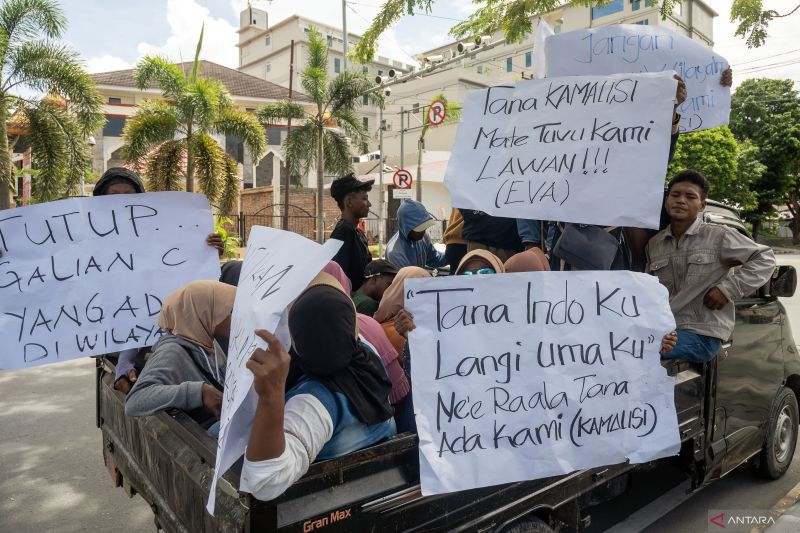 TUTUP...
GALIAN C
YANG AD
DI WILAYA
Jangan
Kami
Tana KAMALISI
Mate Tuvu Kami
LAWAN!!!
(EVA)
"Tana Indo Ku
Langi UmaKU"
Ne'e Raala Tana
Ada Kami (KAMALISI)
Gran Max
ANTARA